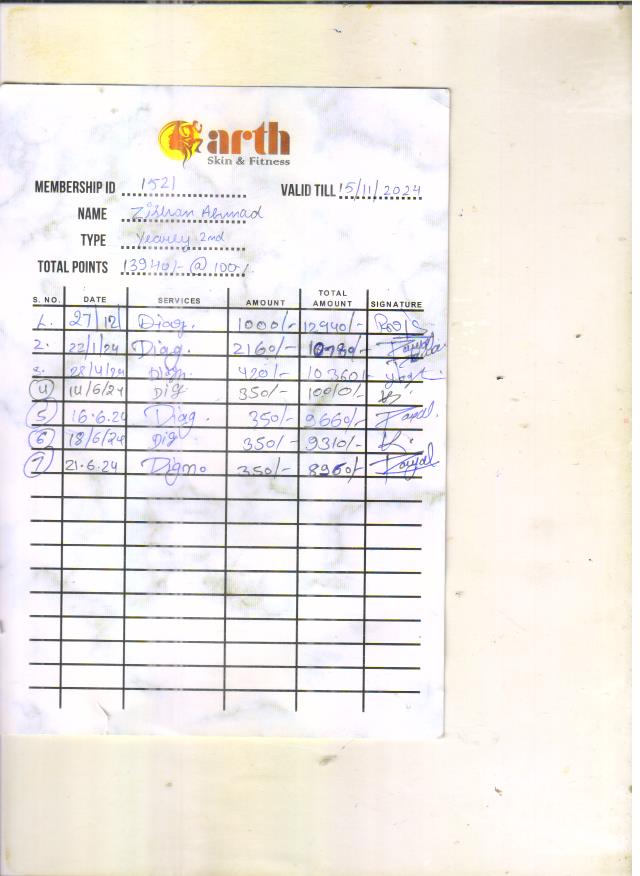 arth
Skin & Fitness
MEMBERSHIP ID 1521 VALID TILL 15/11/2024
NAME Zishan Ahmad
TYPE Yearly 2nd
TOTAL POINTS 13940/- @ 100/-
S. NO. DATE SERVICES AMOUNT TOTAL AMOUNT SIGNATURE
1. 27/12 Diag. 1000/- 12940/-
2. 22/1/24 Diag. 2160/- 10780/-
3. 28/4/24 Diagn. 420/- 10360/-
4 14/6/24 Dig 350/- 10010/-
5 16.6.24 Diag. 350/- 9660/- Payal.
6 18/6/24 Dig 350/- 9310/-
7 21.6.24 Digno 350/- 8960/- Payal